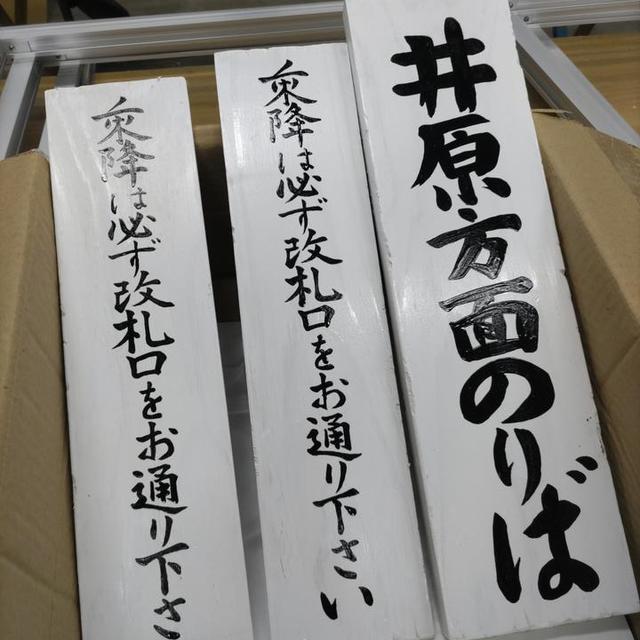 井原方面のりば
乗降は必ず改札口をお通り下さい
乗降は必ず改札口をお通り下さ